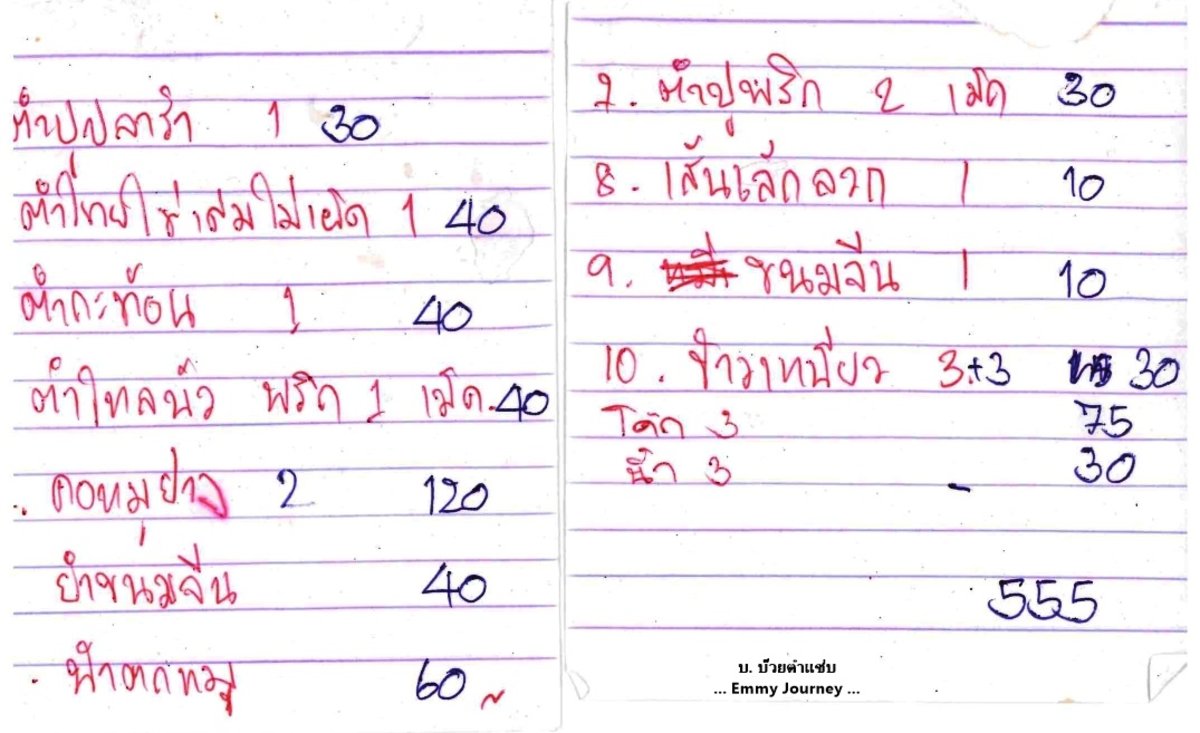 ตำปูปลาร้า 1 30
ตำไทยใข่เค็มไม่เผ็ด 1 40
ตำกะท้อน 1 40
ตำไทลบัว พริก 1 เม็ด. 40
คอหมูย่าง 2 120
ยำขนมจีน 40
น้ำตกหมู 60
7. ตำปูพริก 2 เม็ด 30
8. เส้นเล็กลวก 1 10
9. ขนมจีน 1 10
10. ข้าวเหนียว 3+3 30
โค้ก 3 75
น้ำ 3 30
555
บ. บ๊วยตำแซ่บ
... Emmy Journey ...